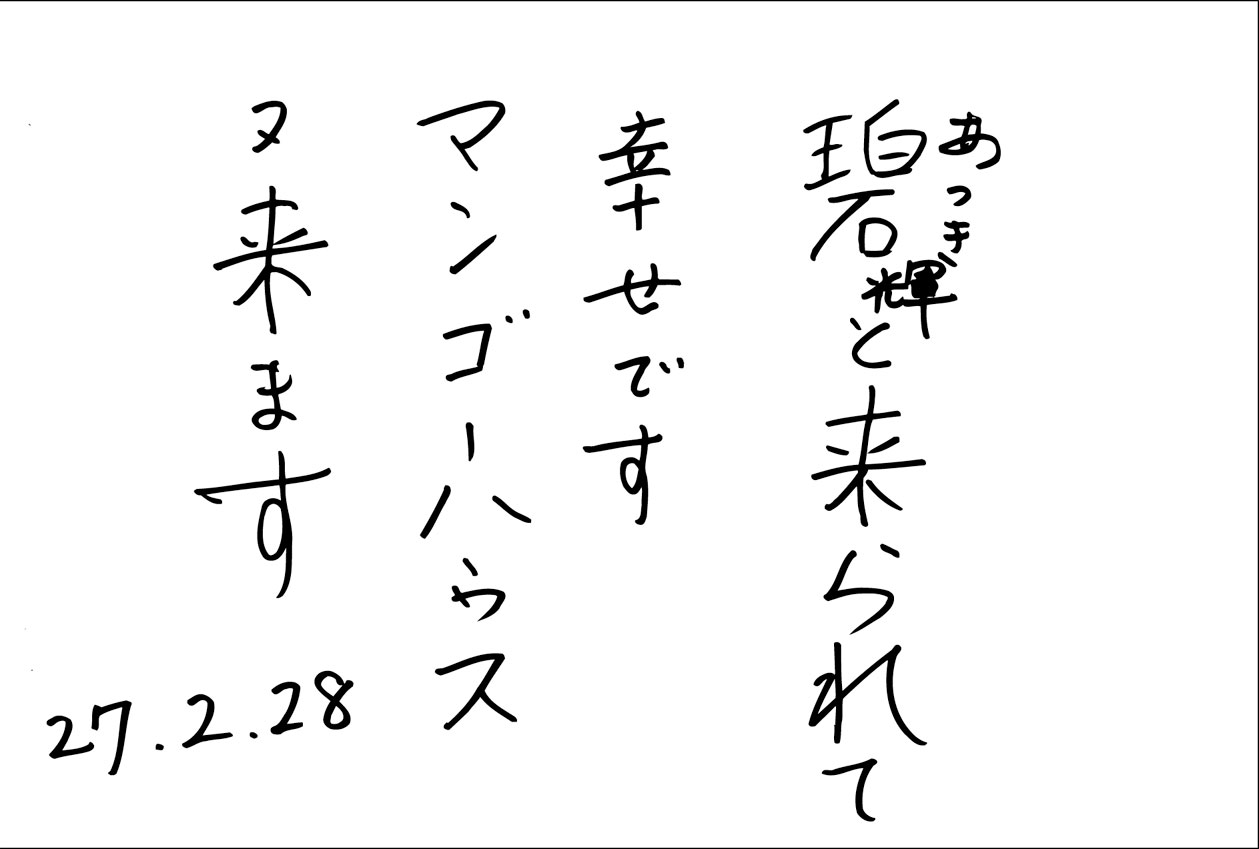 あっき
碧輝と来られて
幸せです
マンゴーハウス
又来ます
27.2.28